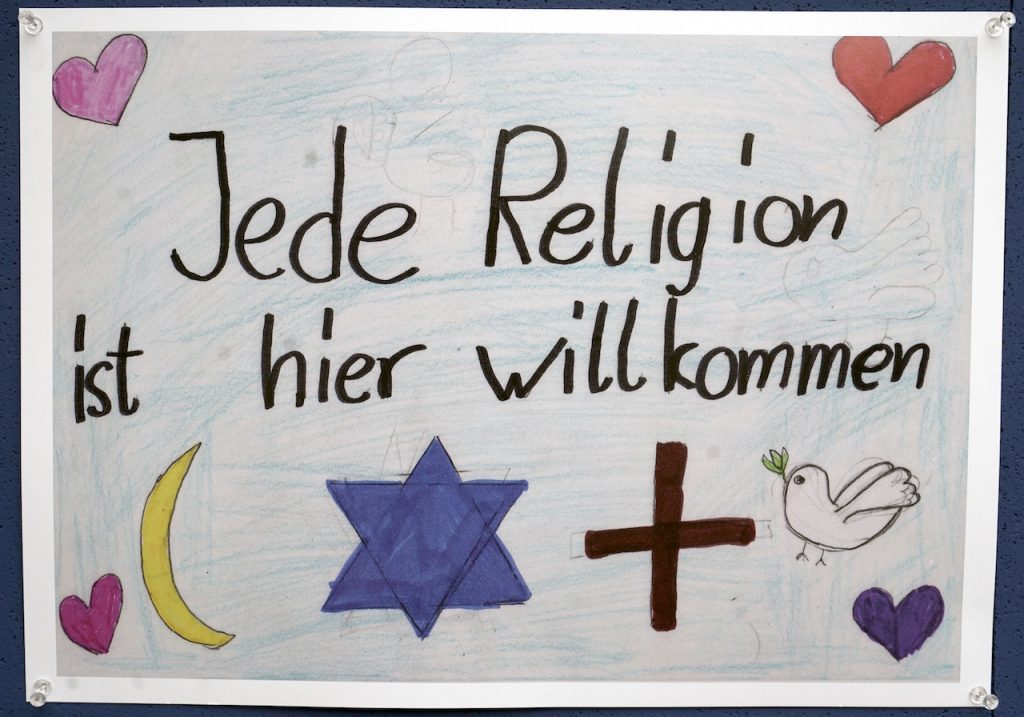 Jede Religion
ist hier willkommen